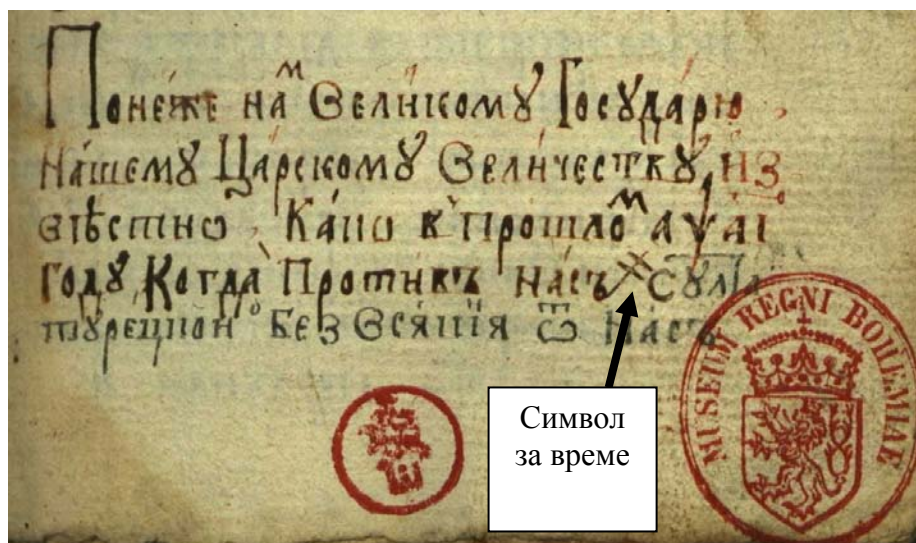 Понéже нáᵐ Великомꙋ̀ Госꙋдáрю
Нáшемꙋ Цáрскомꙋ Вели́чествꙋ, из
вѣстнѡ, Кáкѡ в̾ прошлоᵐ ҂аѱаі
годꙋ, Когда Проти́въ нáсъ Сꙋлта
тꙋрецкой без Всякїя ѿ нáсъ
Символ
за време
MUSEUM REGNI BOHEMIAE